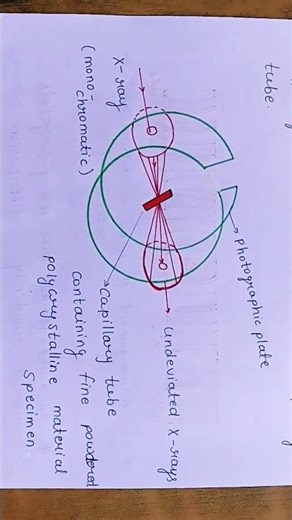 tube.
X-ray
(mono-
chromatic)
photographic plate
undeviated X-rays
Capillary tube
containing fine powdered
polycrystalline material
specimen.